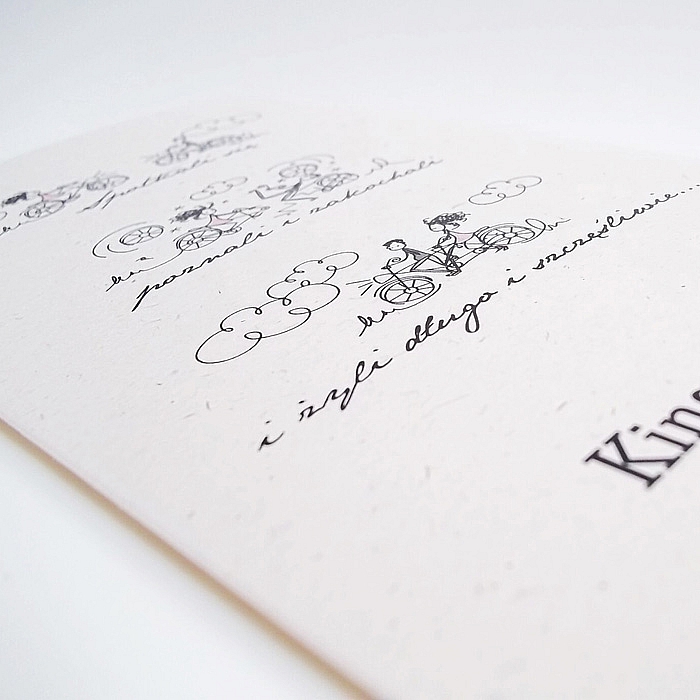 Spotkali się
poznali i zakochali
i żyli długo i szczęśliwie...
King